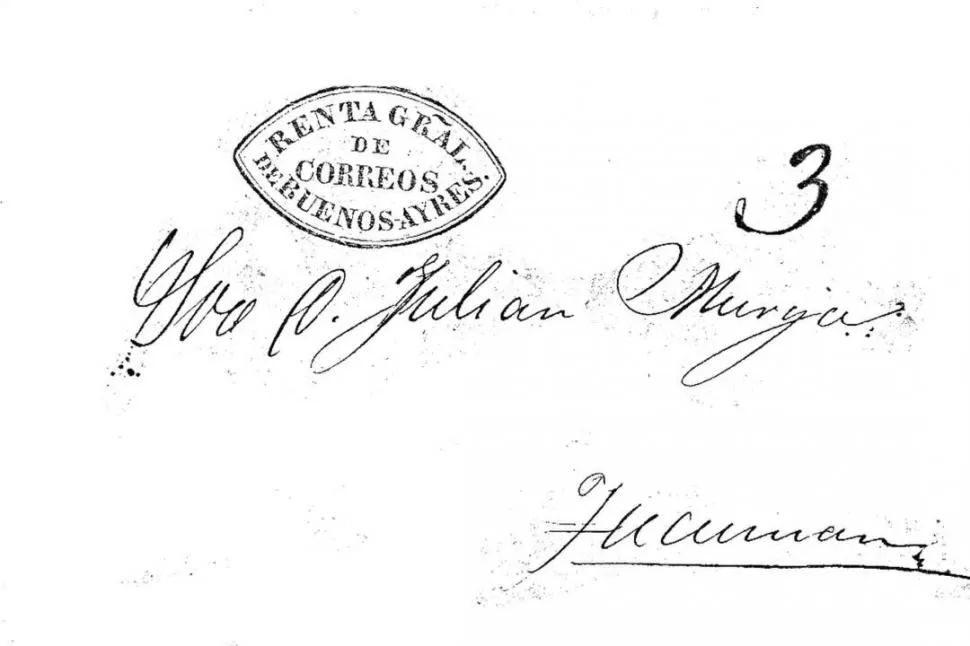 RENTA GRÃL.
DE
CORREOS
DE BUENOS-AYRES.
3
D. Julian Murga
Tucuman